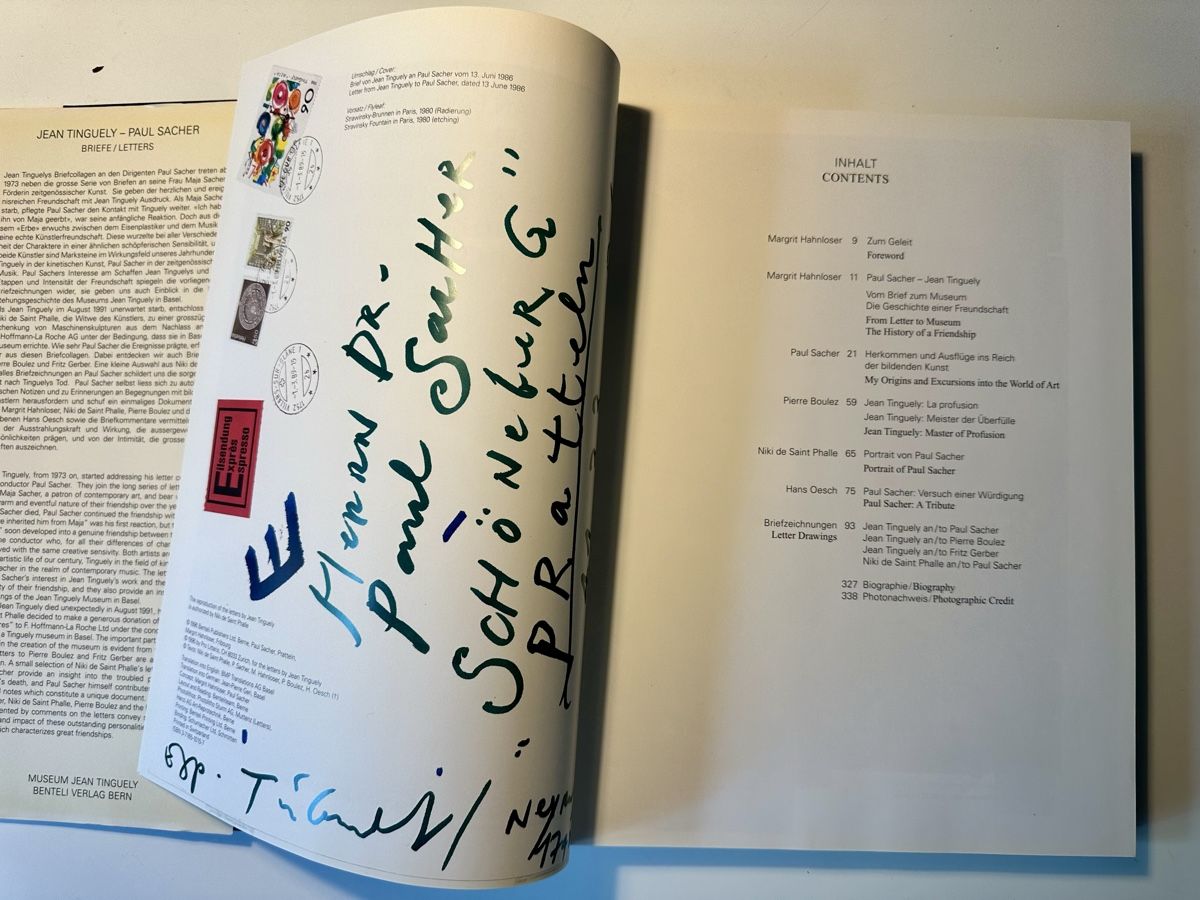 JEAN TINGUELY – PAUL SACHER
BRIEFE / LETTERS
Jean Tinguelys Briefcollagen an den Dirigenten Paul Sacher treten ab
1973 neben die grosse Serie von Briefen an seine Frau Maja Sacher
Förderin zeitgenössischer Kunst. Sie geben der herzlichen und ereig
nisreichen Freundschaft mit Jean Tinguely Ausdruck. Als Maja Sacher
starb, pflegte Paul Sacher den Kontakt mit Tinguely weiter. «Ich hab
ihn von Maja geerbt», war seine anfängliche Reaktion. Doch aus die
sem «Erbe» erwuchs zwischen dem Eisenplastiker und dem Musik
eine echte Künstlerfreundschaft. Diese wurzelte bei aller Verschiede
heit der Charaktere in einer ähnlichen schöpferischen Sensibilität, u
beide Künstler sind Marksteine im Wirkungsfeld unseres Jahrhunder
Tinguely in der kinetischen Kunst, Paul Sacher in der zeitgenössisc
Musik. Paul Sachers Interesse am Schaffen Jean Tinguelys und
tappen und Intensität der Freundschaft spiegeln die vorliegen
riefzeichnungen wider, sie geben uns auch Einblick in die
tehungsgeschichte des Museums Jean Tinguely in Basel.
ls Jean Tinguely im August 1991 unerwartet starb, entschloss
ki de Saint Phalle, die Witwe des Künstlers, zu einer grosszüg
chenkung von Maschinenskulpturen aus dem Nachlass an
Hoffmann-La Roche AG unter der Bedingung, dass sie in Base
useum errichte. Wie sehr Paul Sacher die Ereignisse prägte, erf
r aus diesen Briefcollagen. Dabei entdecken wir auch Brief
rre Boulez und Fritz Gerber. Eine kleine Auswahl aus Niki de
alles Briefzeichnungen an Paul Sacher schildert uns die sorge
t nach Tinguelys Tod. Paul Sacher selbst liess sich zu auto
schen Notizen und zu Erinnerungen an Begegnungen mit bild
stlern herausfordern und schuf ein einmaliges Dokument
Margrit Hahnloser, Niki de Saint Phalle, Pierre Boulez und d
benen Hans Oesch sowie die Briefkommentare vermittel
der Ausstrahlungskraft und Wirkung, die aussergewö
önlichkeiten prägen, und von der Intimität, die grosse
ften auszeichnen.
Tinguely, from 1973 on, started addressing his letter c
onductor Paul Sacher. They join the long series of lett
Maja Sacher, a patron of contemporary art, and bear
arm and eventful nature of their friendship over the ye
Sacher died, Paul Sacher continued the friendship wit
e inherited him from Maja" was his first reaction, but
" soon developed into a genuine friendship between t
he conductor who, for all their differences of char
ved with the same creative sensivity. Both artists ar
artistic life of our century, Tinguely in the field of kin
acher in the realm of contemporary music. The let
Sacher's interest in Jean Tinguely's work and the
ty of their friendship, and they also provide an ins
ngs of the Jean Tinguely Museum in Basel.
Jean Tinguely died unexpectedly in August 1991, h
t Phalle decided to make a generous donation of
res" to F. Hoffmann-La Roche Ltd under the conc
a Tinguely museum in Basel. The important part
in the creation of the museum is evident from
tters to Pierre Boulez and Fritz Gerber are a
n. A small selection of Niki de Saint Phalle's let
cher provide an insight into the troubled p
's death, and Paul Sacher himself contribute
l notes which constitute a unique document.
r, Niki de Saint Phalle, Pierre Boulez and the
ented by comments on the letters convey
and impact of these outstanding personaliti
ich characterizes great friendships.
MUSEUM JEAN TINGUELY
BENTELI VERLAG BERN
Umschlag / Cover:
Brief von Jean Tinguely an Paul Sacher vom 13. Juni 1986
Letter from Jean Tinguely to Paul Sacher, dated 13 June 1986
Vorsatz / Flyleaf:
Strawinsky-Brunnen in Paris, 1980 (Radierung)
Stravinsky Fountain in Paris, 1980 (etching)
90
90
Eilsendung
Exprès
Espresso
E
Herrn DR.
Paul Sacher
"SCHÖNeburG"
PRatteln
Exp. Tinguely
The reproduction of the letters by Jean Tinguely
is authorized by Niki de Saint Phalle
© 1996 Benteli Publishers Ltd. Berne, Paul Sacher, Pratteln,
Margrit Hahnloser, Fribourg
© 1996 by Pro Litteris, CH 8033 Zurich, for the letters by Jean Tinguely
© Texts: Niki de Saint Phalle, P. Sacher, M. Hahnloser, P. Boulez, H. Oesch (†)
Translation into English: BMP Translations AG Basel
Translation into German: Jean-Pierre Gerr, Basel
Concept: Margrit Hahnloser, Paul Sacher
Layout and Reading: Benteliteam, Berne
Photolithos: Photolitho Sturm AG, Muttenz (Letters),
Henzi AG An-Reprotechnik, Berne
Printing: Benteli Printing Ltd. Berne
Binding: Schumacher Ltd, Schmitten
Printed in Switzerland
INHALT
CONTENTS
Margrit Hahnloser 9 Zum Geleit
Foreword
Margrit Hahnloser 11 Paul Sacher – Jean Tinguely
Vom Brief zum Museum
Die Geschichte einer Freundschaft
From Letter to Museum
The History of a Friendship
Paul Sacher 21 Herkommen und Ausflüge ins Reich
der bildenden Kunst
My Origins and Excursions into the World of Art
Pierre Boulez 59 Jean Tinguely: La profusion
Jean Tinguely: Meister der Überfülle
Jean Tinguely: Master of Profusion
Niki de Saint Phalle 65 Portrait von Paul Sacher
Portrait of Paul Sacher
Hans Oesch 75 Paul Sacher: Versuch einer Würdigung
Paul Sacher: A Tribute
Briefzeichnungen 93 Jean Tinguely an/to Paul Sacher
Letter Drawings Jean Tinguely an/to Pierre Boulez
Jean Tinguely an/to Fritz Gerber
Niki de Saint Phalle an/to Paul Sacher
327 Biographie/Biography
338 Photonachweis/Photographic Credit